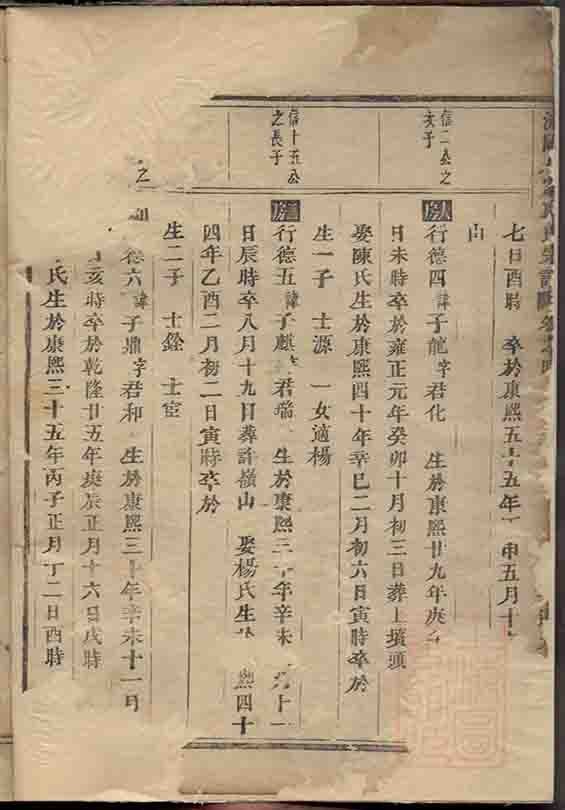 七日酉時 卒於康熙五十五年 申五月十
山
信二公之
次子
行德四諱子龍字君化 生於康熙廿九年庚
日未時卒於雍正元年癸卯十月初三日葬上墳頭
娶陳氏生於康熙四十年辛巳二月初六日寅時卒於
生一子 士源 一女適楊
信十五公
之長子
行德五諱子麒 君瑞 生於康熙三 年辛未 十一
日辰時卒八月十九日葬許嶺山 娶楊氏生 熙四十
四年乙酉二月初二日寅時卒於
生二子 士銓 士宦
之
德六諱子鼎字君和 生於康熙三十年辛未十一月
亥時卒於乾隆廿五年庚辰正月十六日戌時
氏生於康熙三十五年丙子正月丁二日酉時